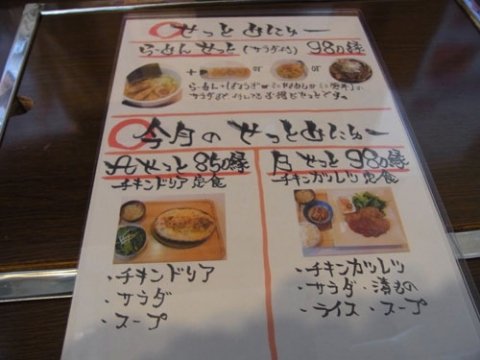 せっとめにゅー
らーめんせっと(サラダ付) 980縁
+ or or
らーめん・ぎょうざ or
サラダまで付いてるお得なせっとです。
今月のせっとめにゅー
Aせっと 850縁
チキンドリア定食
・チキンドリア
・サラダ
・スープ
Bせっと 980縁
チキンカツレツ定食
・チキンカツレツ
・サラダ・漬もの
・ライス・スープ